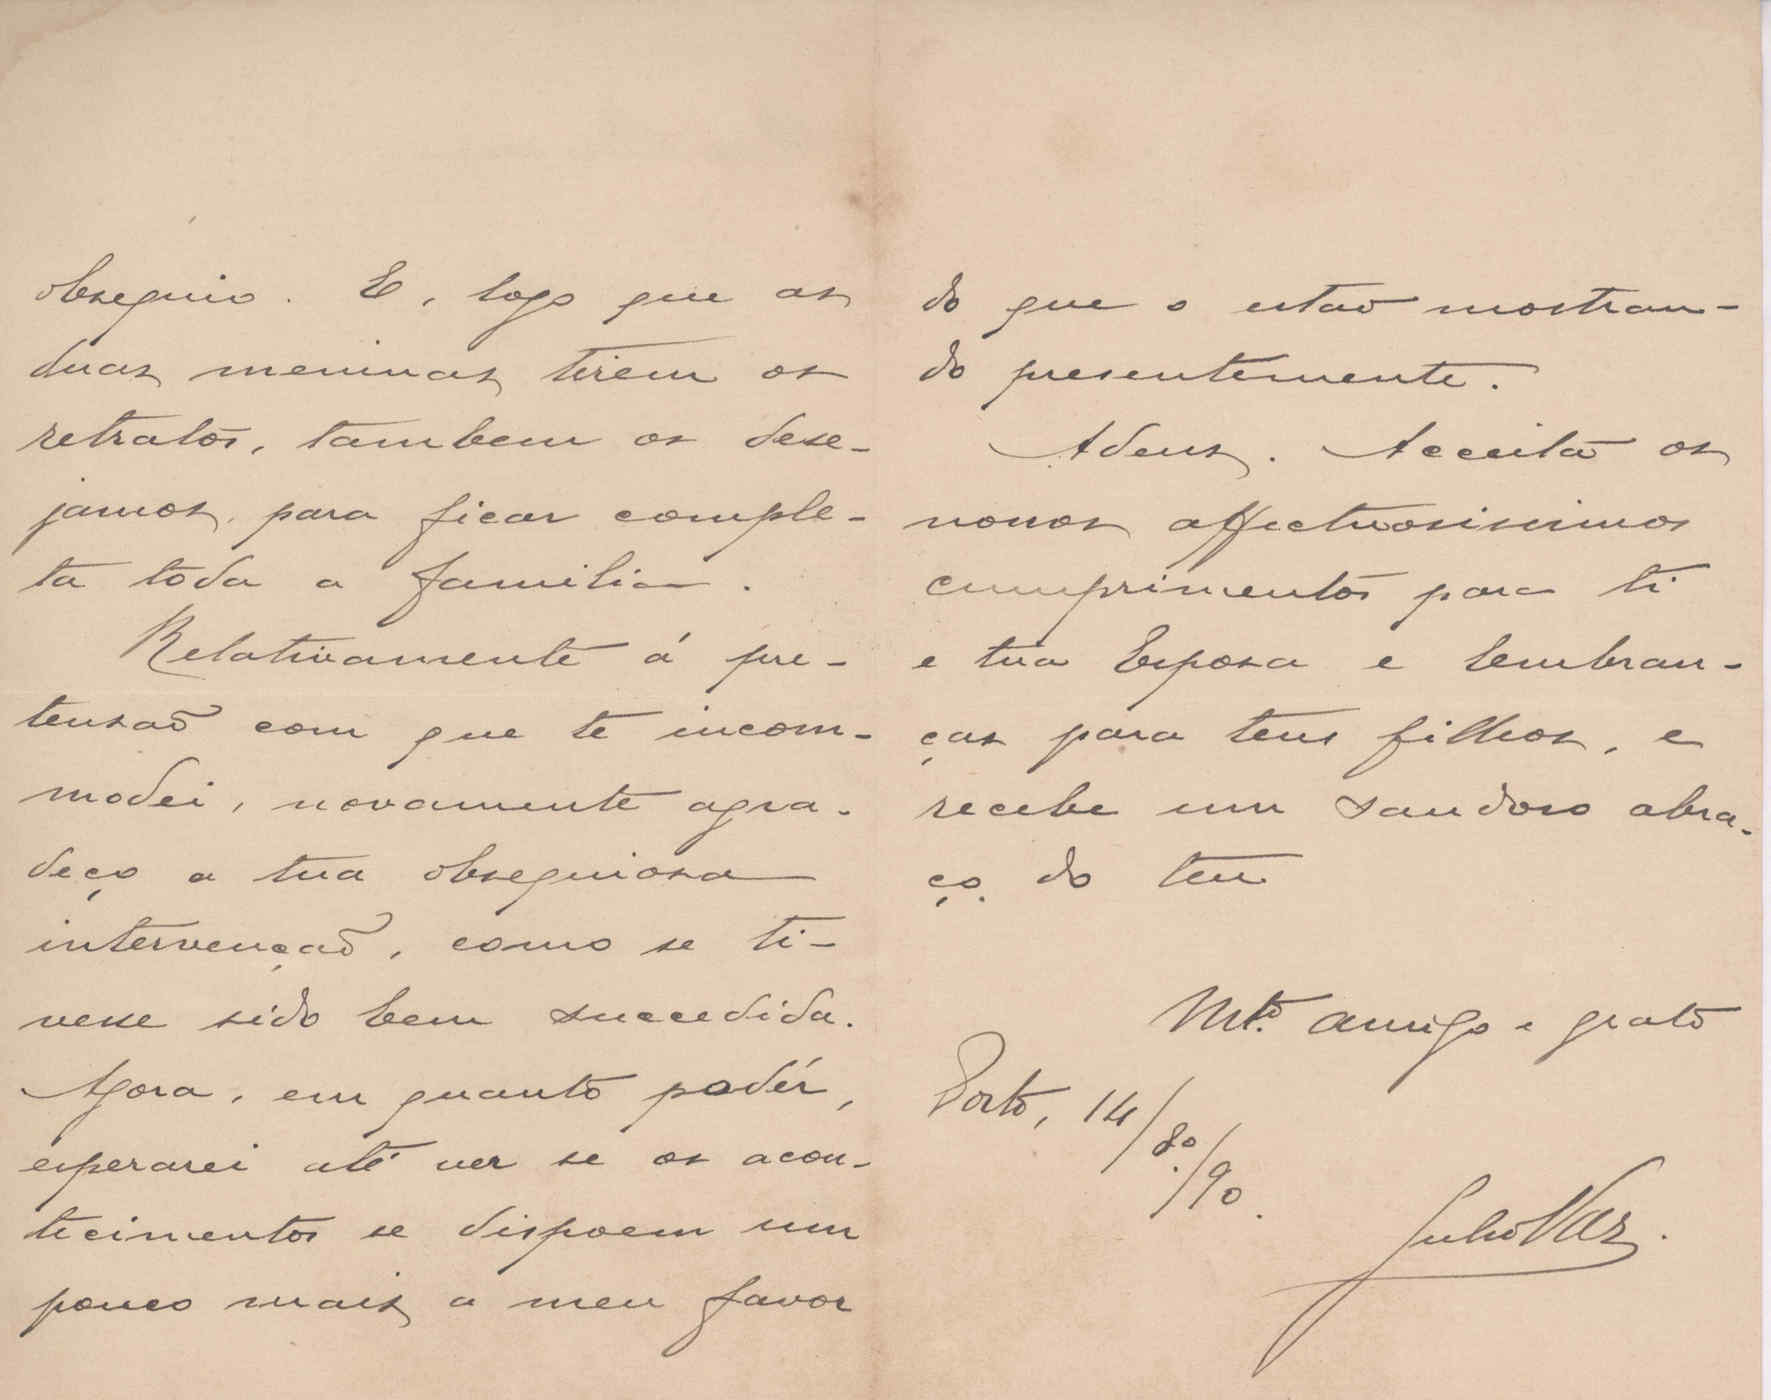 obsequio. E, logo que as
duas meninas tirem os
retratos, tambem os dese-
jamos, para ficar comple-
ta toda a familia.
Relativamente á pre-
tensaõ com que te incom-
modei, novamente agra-
deço a tua obsequiosa
intervençaõ, como se ti-
vesse sido bem succedida.
Agora, em quanto podér,
esperarei até ver se os acon-
tecimentos se dispoem um
pouco mais a meu favor
do que o estao mostran-
do presentemente.
Adeus. Acceita os
nossos affectuosissimos
cumprimentos para ti
e tua Esposa e lembran-
ças para teus filhos, e
recebe um saudoso abra-
ço do teu
Mto. amigo e grato
Porto, 14/8o/90.
Julio Vaz.